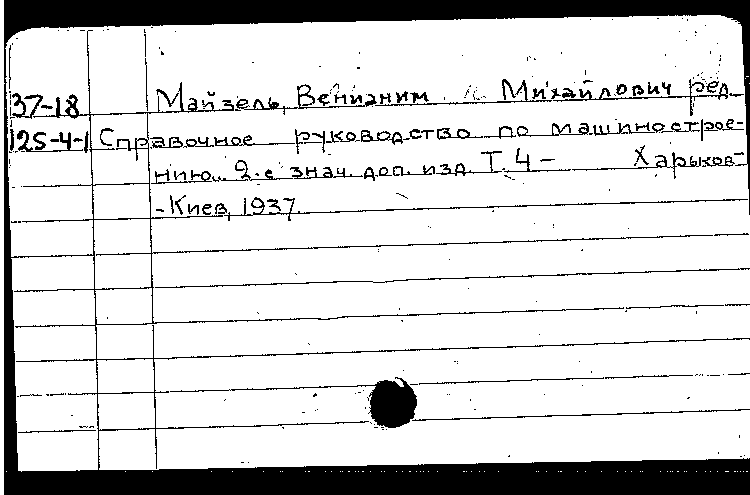 37-18 Майзель, Вениамин Михайлович ред.
125-4-1 Справочное руководство по машинострое-
нию. 2-е знач. доп. изд. Т. 4 - Харьков-
-Киев, 1937.